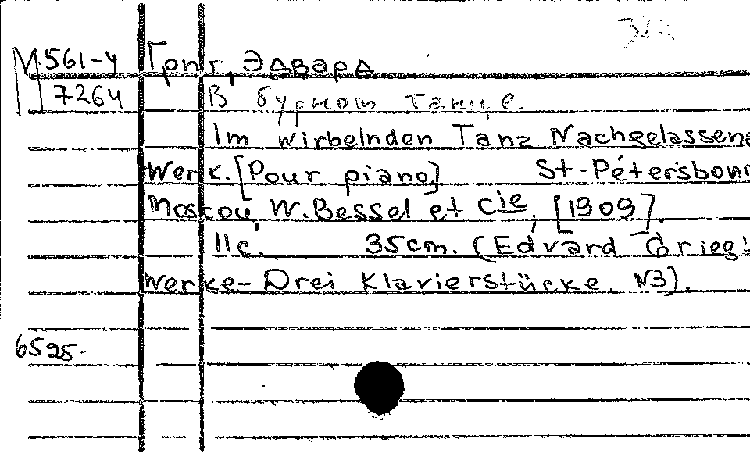 М 561-4 Григ, Эдвард
7264 В бурном танце.
Im wirbelnden Tanz Nachgelassene
Werk. [Pour piano] St-Pétersbour
Moscou, W. Bessel et Cie, [1909].
11 c. 35 cm. (Edvard Grieg's
Werke - Drei Klavierstücke. N3).
6525-